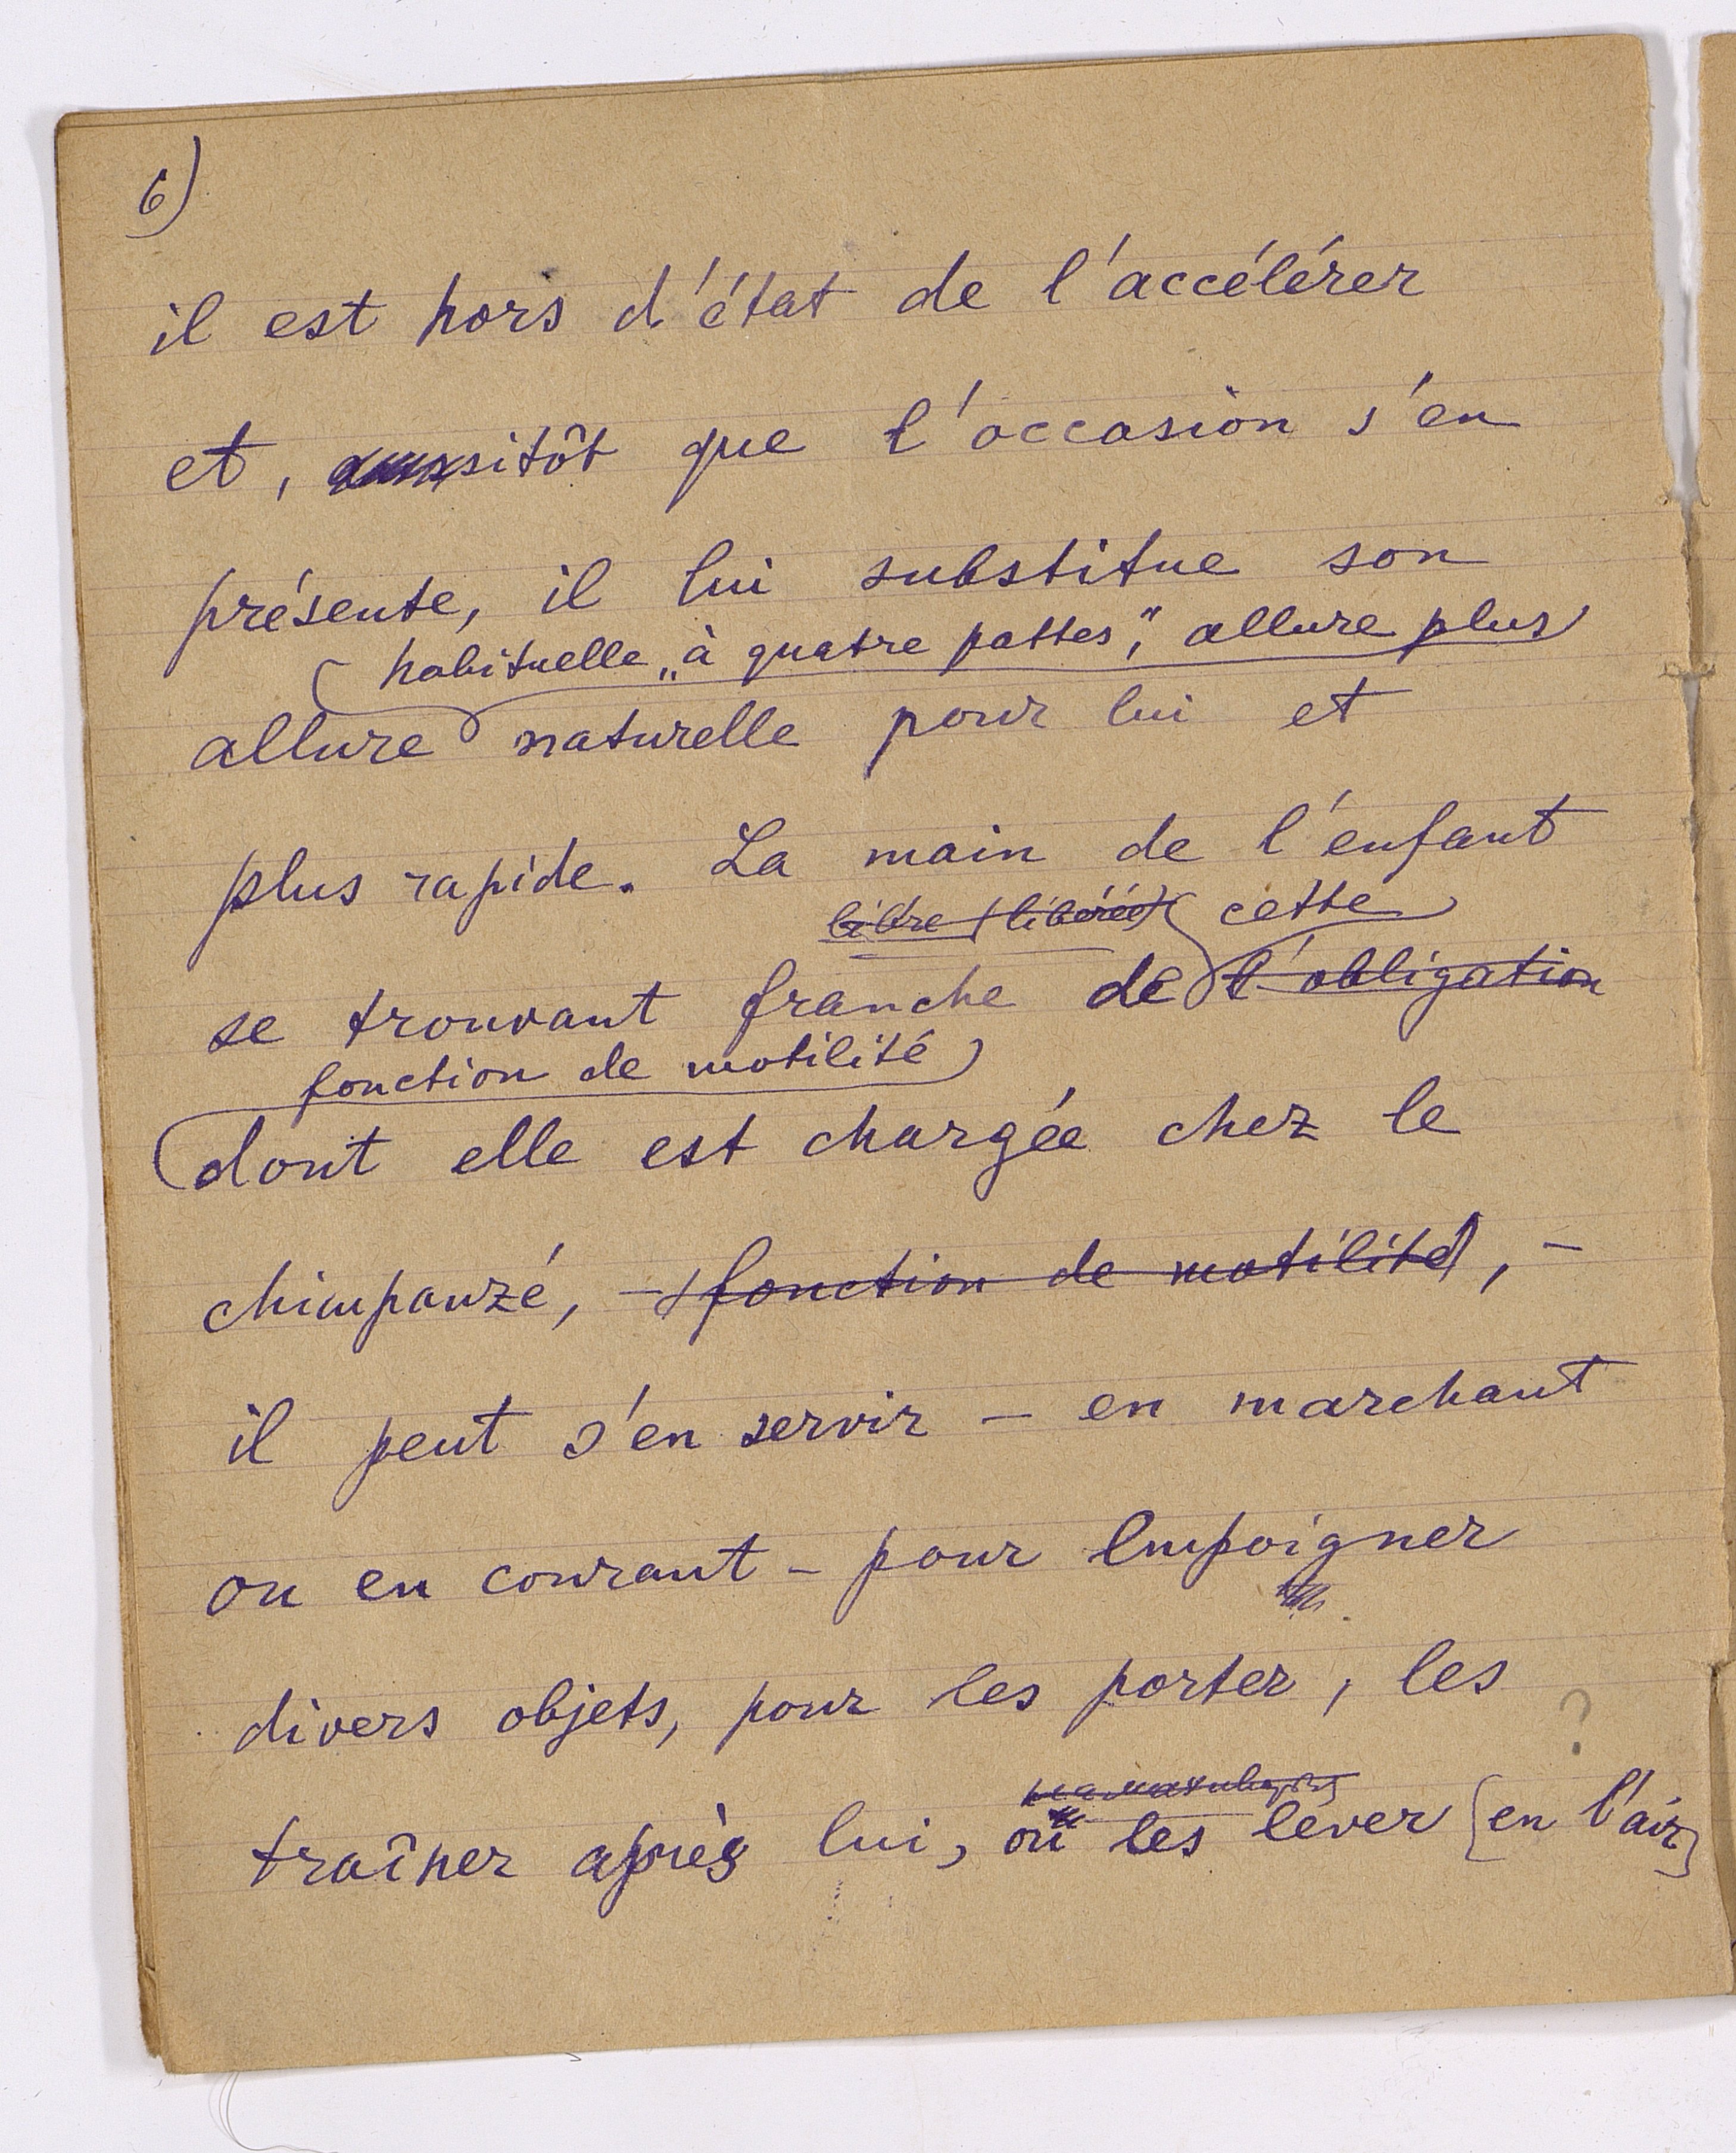 6)
il est hors d'état de l'accélérer
et, aussitôt que l'occasion s'en
présente, il lui substitue son
habituelle „à quatre pattes", allure plus
allure naturelle pour lui et
plus rapide. La main de l'enfant
libre (libérée) cette
se trouvant franche de l'obligation
fonction de motilité
dont elle est chargée chez le
chimpanzé, – (fonction de motilité), –
il peut s'en servir – en marchant
ou en courant – pour empoigner
divers objets, pour les porter, les
?
traîner après lui, ou les lever [en l'air]